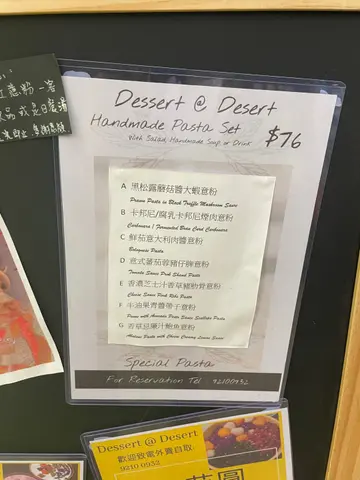 意點一客
Dessert @ Desert
Handmade Pasta Set
With Salad, Handmade Soup or Drink
$76
A 黑松露蘑菇醬大蝦意粉
Prawn Pasta in Black Truffle Mushroom Sauce
B 卡邦尼/腐乳卡邦尼煙肉意粉
Carbonara / Fermented Bean Curd Carbonara
C 鮮茄意大利肉醬意粉
Bolognese Pasta
D 意式蕃茄蓉豬仔脾意粉
Tomato Sauce Pork Shank Pasta
E 香濃芝士汁香草豬肋骨意粉
Cheese Sauce Pork Ribs Pasta
F 牛油果青醬帶子意粉
Penne with Avocado Pesto Sauce Scallops Pasta
G 香草忌廉汁鮑魚意粉
Abalone Pasta with Cheese Creamy Sauce
Special Pasta
For Reservation Tel 92100932
Dessert @ Desert
歡迎致電外賣自取
9210 0932
圓